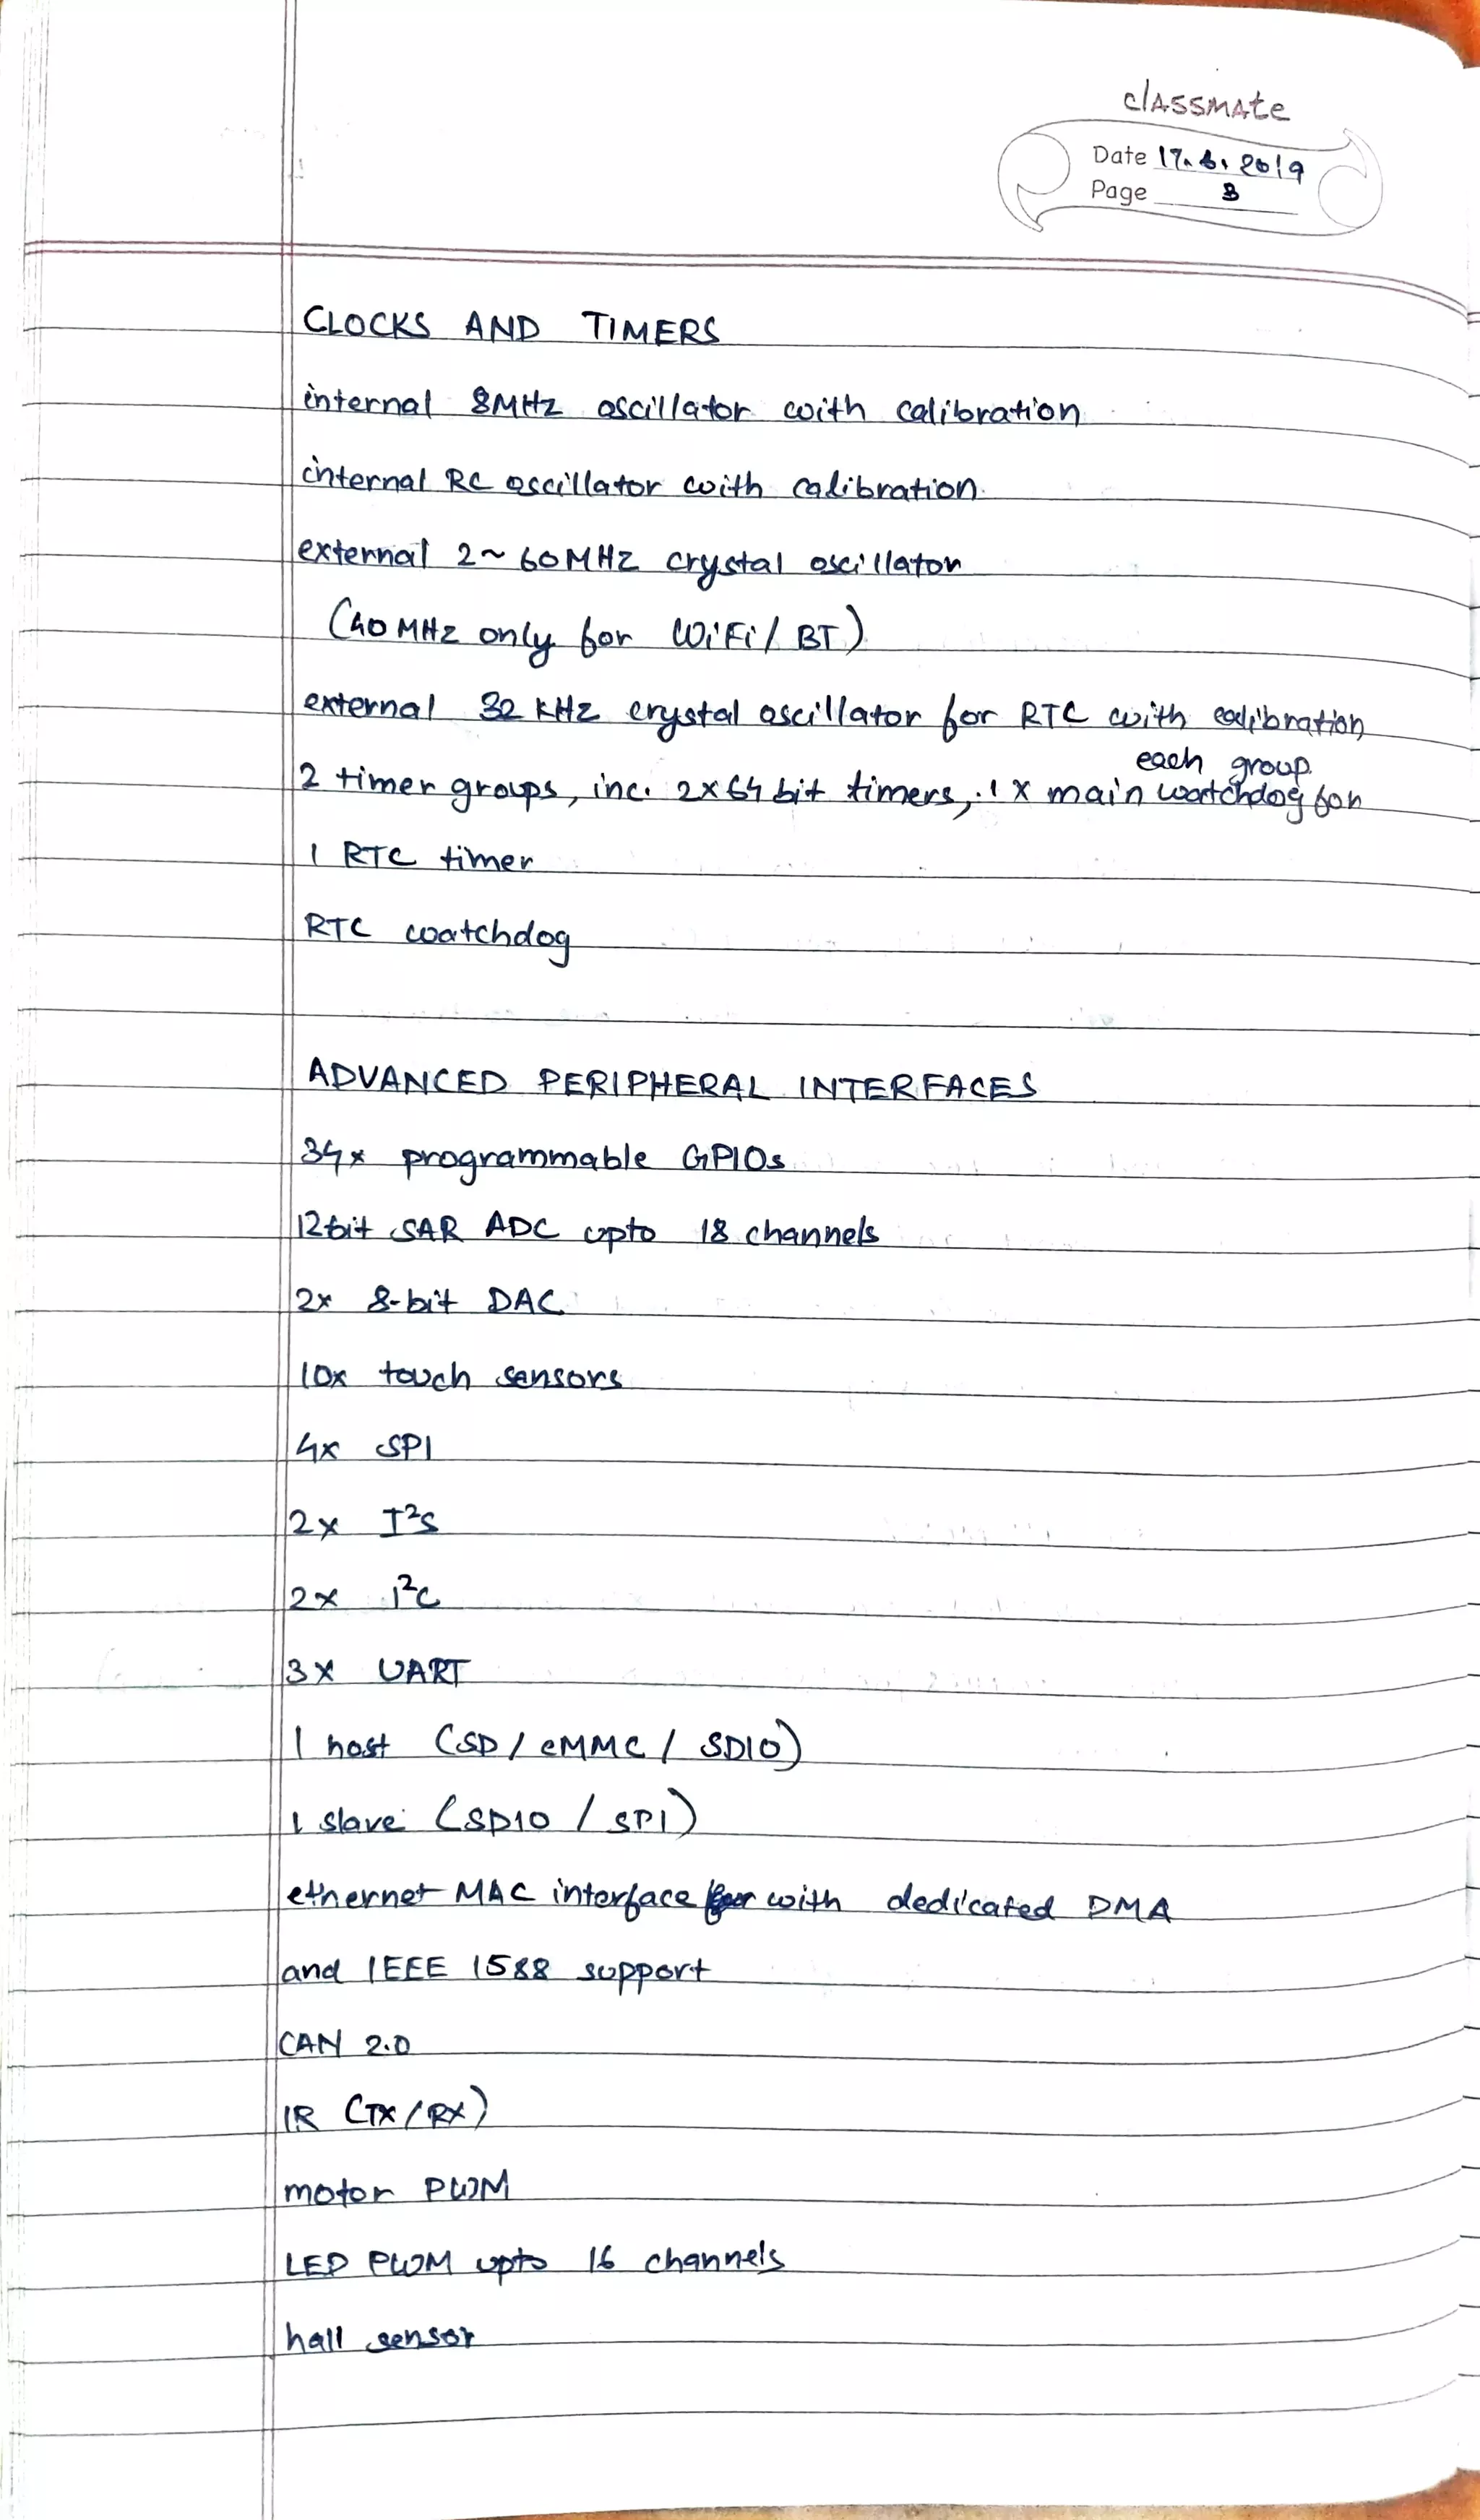 classmate
Date 17.6.2019
Page 3
CLOCKS AND TIMERS
internal 8MHz oscillator with calibration
internal RC oscillator with calibration
external 2~60MHz crystal oscillator
(40MHz only for WiFi/BT)
external 32 kHz crystal oscillator for RTC with calibration
each group.
2 timer groups, inc. 2x64 bit timers, 1x main watchdog for
1 RTC timer
RTC watchdog
ADVANCED PERIPHERAL INTERFACES
34x programmable GPIOs
12bit SAR ADC upto 18 channels
2x 8-bit DAC
10x touch sensors
4x SPI
2x I²S
2x I²C
3x UART
1 host (SD/eMMC/SDIO)
1 slave (SDIO/SPI)
ethernet MAC interface with dedicated DMA
and IEEE 1588 support
CAN 2.0
IR (TX/RX)
motor PWM
LED PWM upto 16 channels
hall sensor